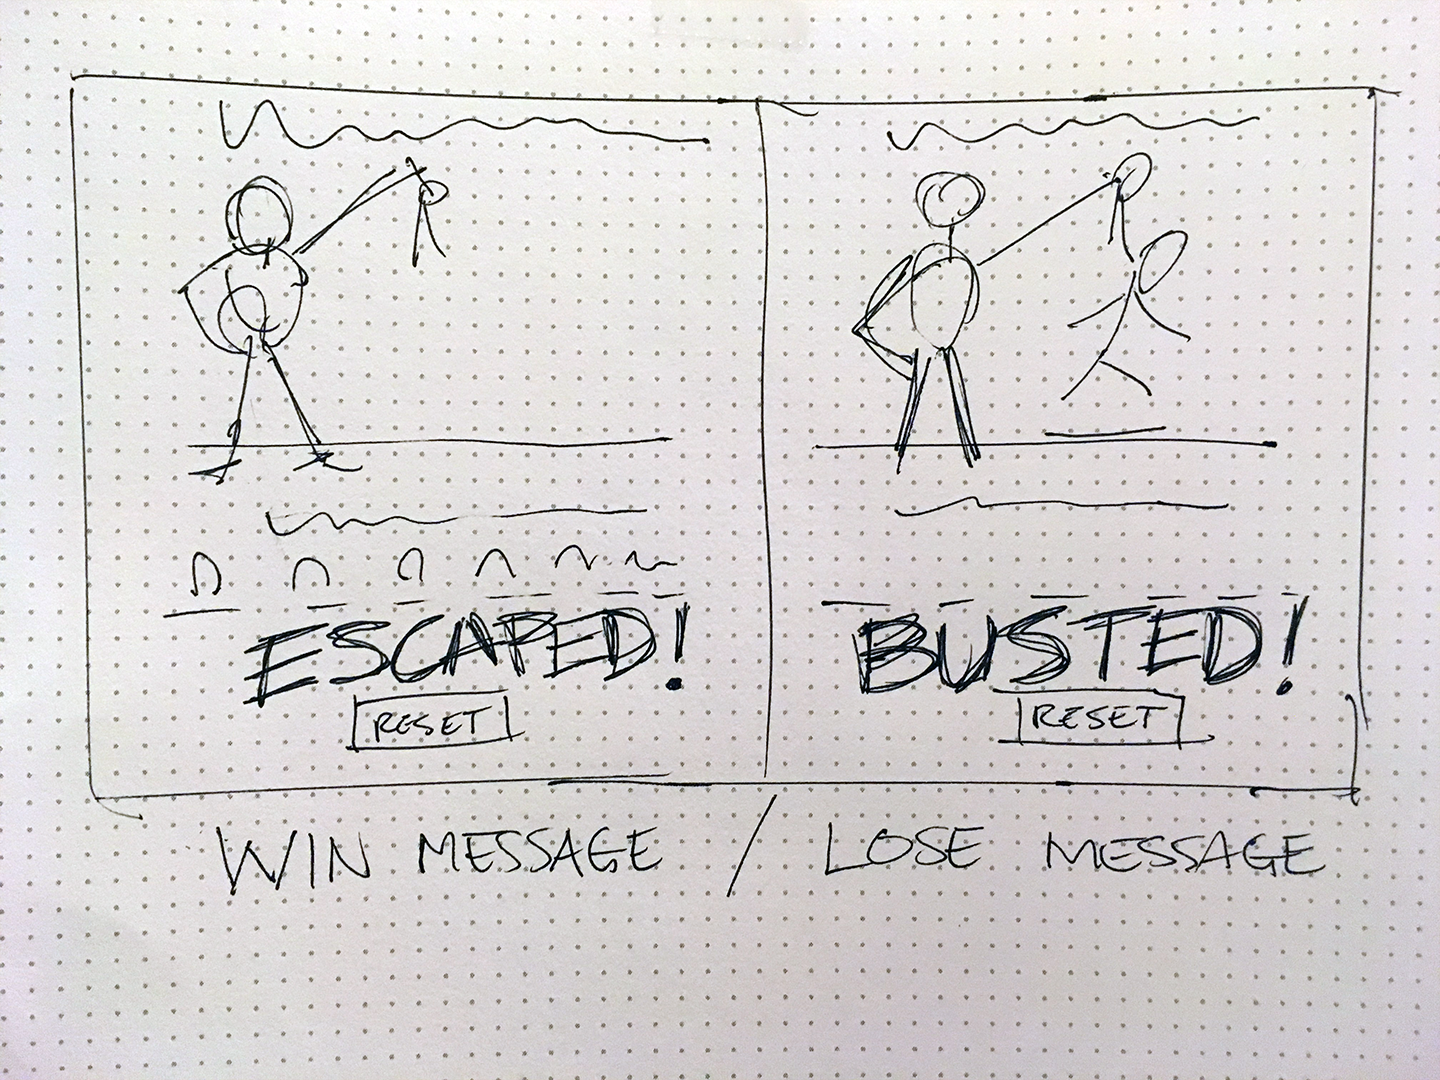 ESCAPED!
RESET
BUSTED!
RESET
WIN MESSAGE / LOSE MESSAGE